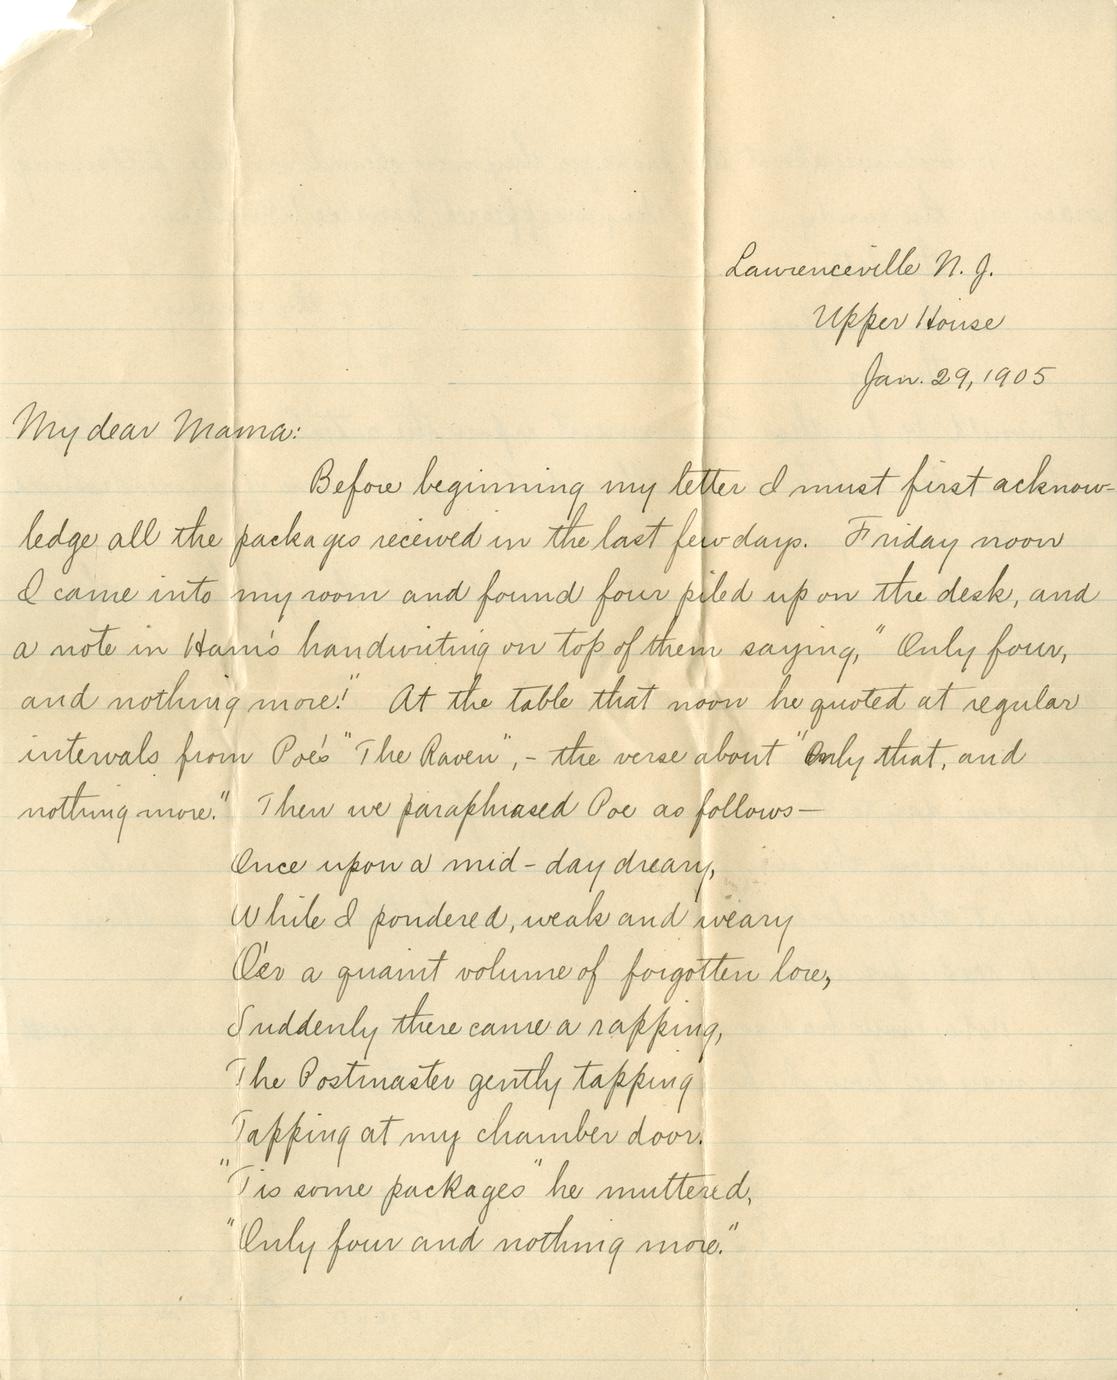 Lawrenceville N. J.
Upper House
Jan. 29, 1905
My dear Mama:
Before beginning my letter I must first acknow-
ledge all the packages received in the last few days. Friday noon
I came into my room and found four piled up on the desk, and
a note in Ham's handwriting on top of them saying, "Only four,
and nothing more!" At the table that noon he quoted at regular
intervals from Poe's "The Raven", - the verse about "Only that, and
nothing more." Then we paraphrased Poe as follows—
Once upon a mid-day dreary,
While I pondered, weak and weary
O'er a quaint volume of forgotten lore,
Suddenly there came a rapping,
The Postmaster gently tapping
Tapping at my chamber door.
"Tis some packages" he muttered,
"Only four and nothing more."